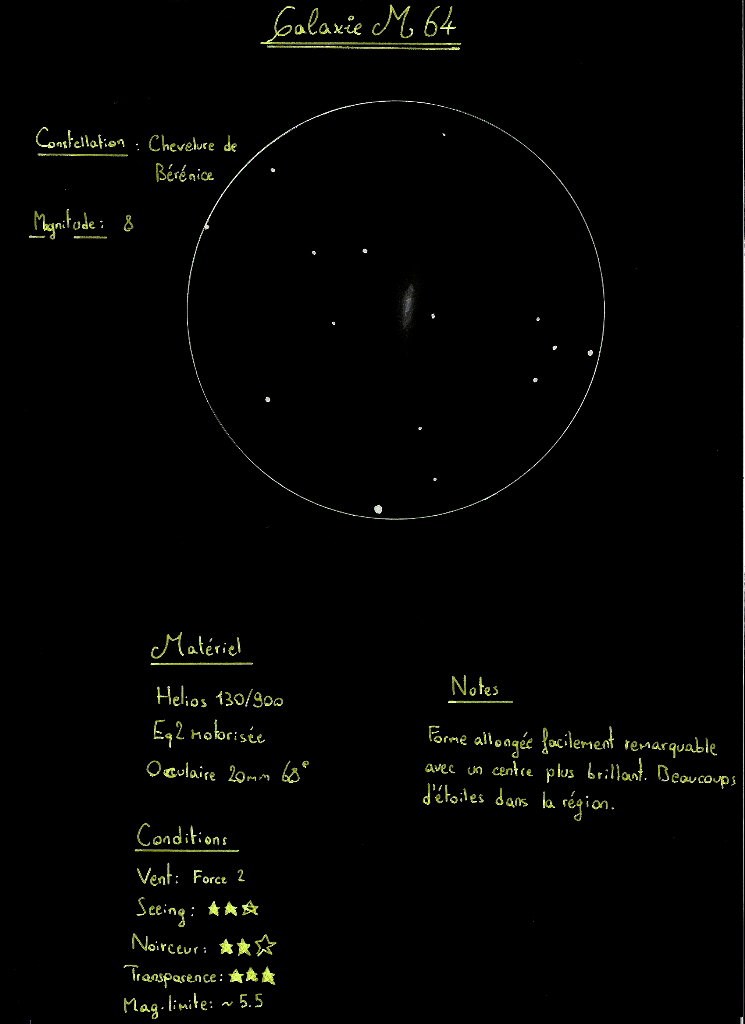 Galaxie M 64
Constellation : Chevelure de
Bérénice
Magnitude : 8
Matériel
Helios 130/900
Eq2 motorisée
Occulaire 20mm 68°
Notes
Forme allongée facilement remarquable
avec un centre plus brillant. Beaucoups
d'étoiles dans la région.
Conditions
Vent : Force 2
Seeing : ★★☆
Noirceur : ★★☆
Transparence : ★★★
Mag. limite : ~ 5.5